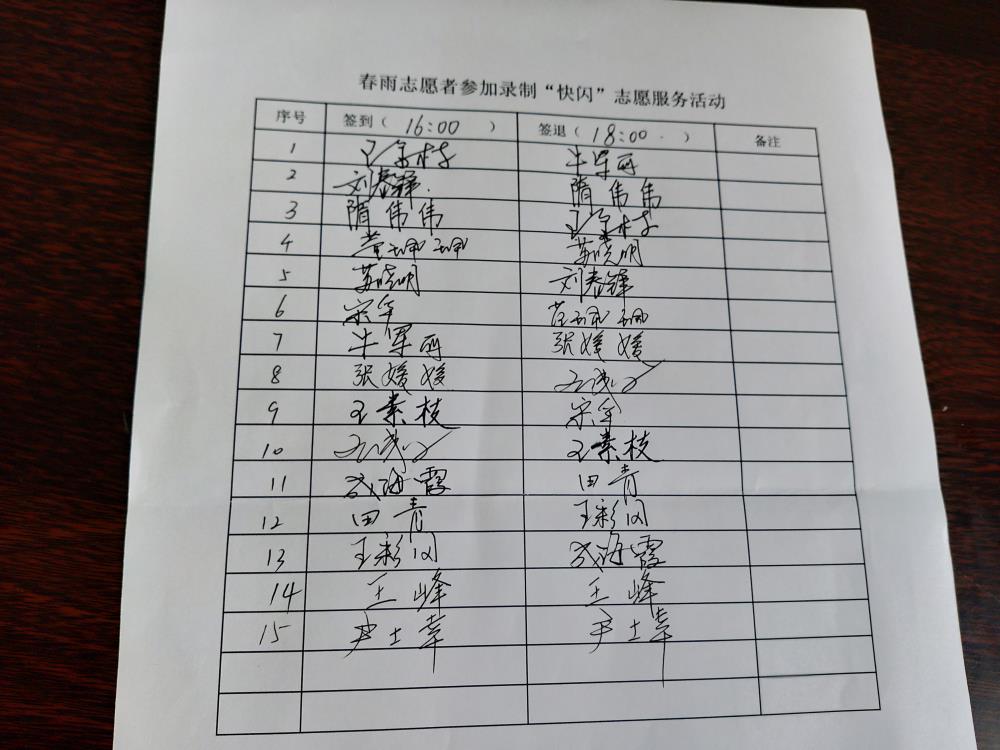 春雨志愿者参加录制“快闪”志愿服务活动
序号 签到（ 16:00 ） 签退（ 18:00 ） 备注
1 牛军丽
2 刘春锋 隋伟伟
3 隋伟伟
4 董珊珊 苏晓明
5 苏晓明 刘春锋
6 宋军 董珊珊
7 牛军丽 张媛媛
8 张媛媛
9 王素枝 宋军
10 王素枝
11 成海霞 田青
12 田青 王彩闪
13 王彩闪 成海霞
14 王峰 王峰
15 尹士幸 尹士幸